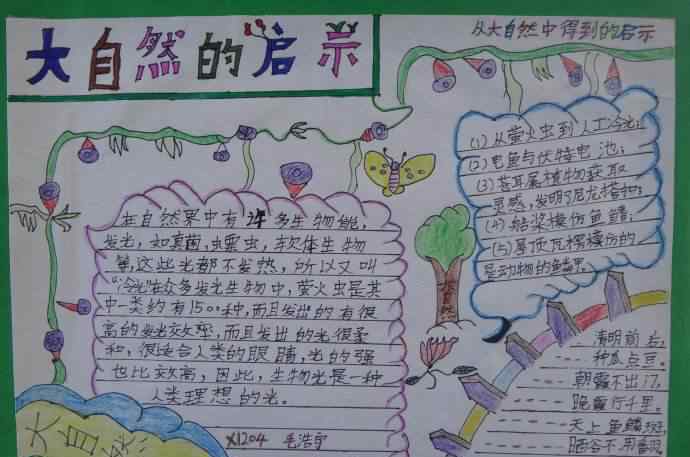 大自然的启示
从大自然中得到的启示
在自然界中有许多生物能
发光,如真菌,蠕虫,软体生物
等,这些光都不发热,所以又叫
“冷光”在众多发光生物中,萤火虫是其
中一类约有1500种,而且发出的有很
高的发光效率,而且发出的光很柔
和,很适合人类的眼睛,光的强
也比较高,因此,生物光是一种
人类理想的光。
X1204 毛浩宇
大自然
(1)从萤火虫到人工冷光;
(2)电鱼与伏特电池;
(3)苍耳属植物获取
灵感,发明了尼龙搭扣;
(4)船桨模仿鱼鳍;
(5)屋顶瓦楞模仿的
是动物的鳞甲。
大自然
清明前后,
种瓜点豆。
朝霞不出门,
晚霞行千里。
天上鱼鳞斑,
晒谷不用翻